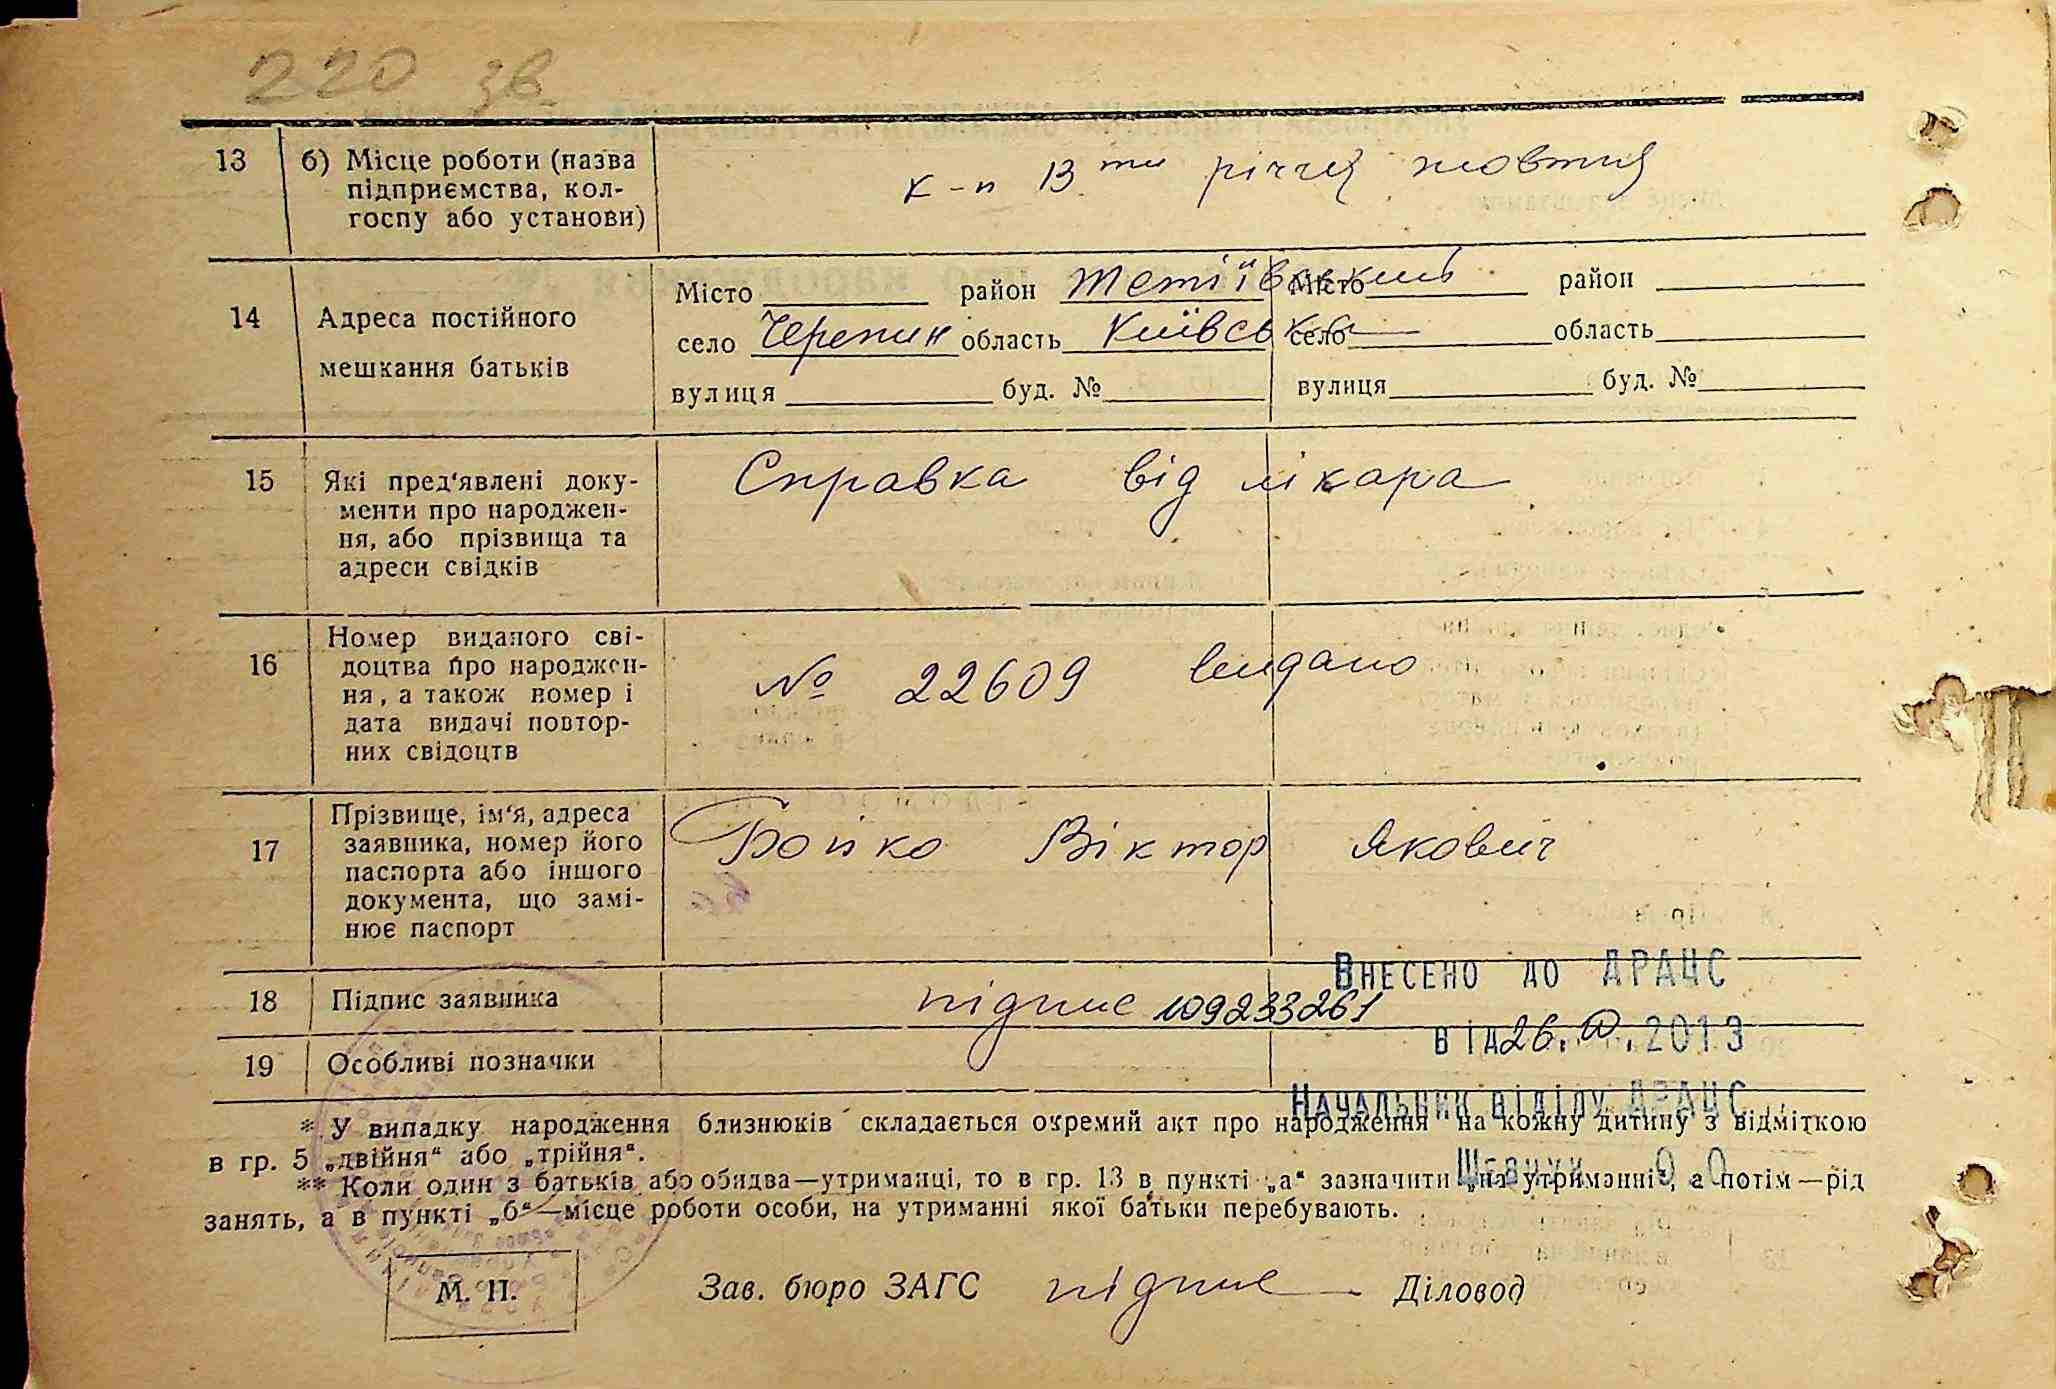 220 зв.
13 б) Місце роботи (назва
підприємства, кол-
госпу або установи)
к-п 13 ти річчя жовтня
14 Адреса постійного
мешкання батьків
Місто район Тетіївський Місто район
село Черепин область Київська село область
вулиця буд. № вулиця буд. №
15 Які пред'явлені доку-
менти про народжен-
ня, або прізвища та
адреси свідків
Справка від лікара
16 Номер виданого сві-
доцтва про народжен-
ня, а також номер і
дата видачі повтор-
них свідоцтв
№ 22609 видано
17 Прізвище, ім'я, адреса
заявника, номер його
паспорта або іншого
документа, що замі-
нює паспорт
Бойко Віктор Якович
18 Підпис заявника підпис 109233261
Внесено до ДРАЦС
від 26. .2013
19 Особливі позначки
Начальник відділу ДРАЦС
* У випадку народження близнюків складається окремий акт про народження на кожну дитину з відміткою
в гр. 5 „двійня“ або „трійня“.
Шевчук О О
** Коли один з батьків або обидва—утриманці, то в гр. 13 в пункті „а“ зазначити „на утриманні“, а потім—рід
занять, а в пункті „б“—місце роботи особи, на утриманні якої батьки перебувають.
М. П. Зав. бюро ЗАГС підпис Діловод